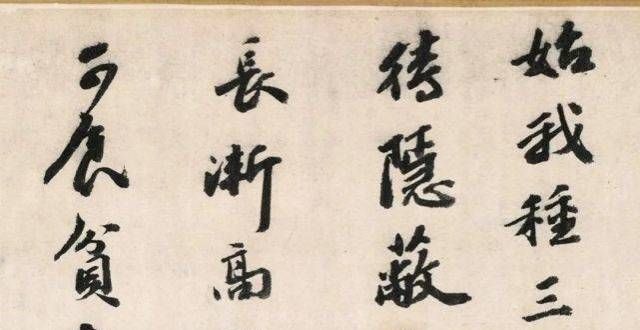 姑我種三
待隱蔽
長漸高
可食貧